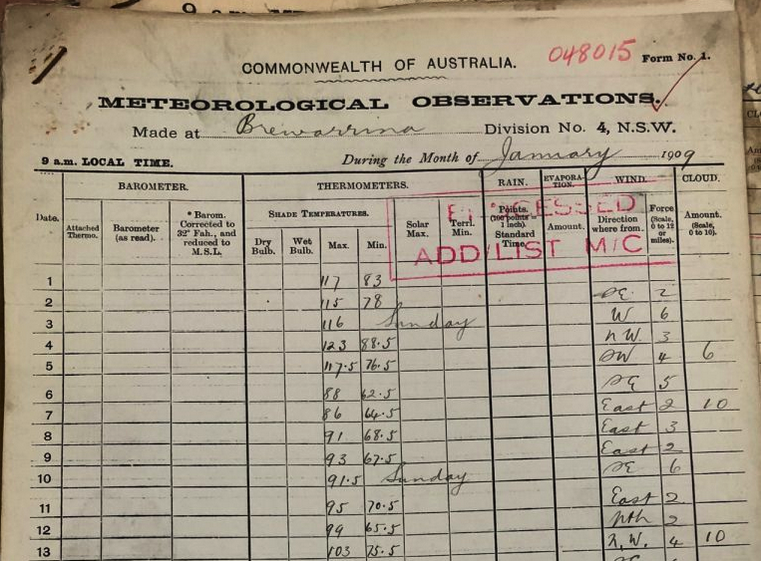 COMMONWEALTH OF AUSTRALIA.
048015 Form No. 1.
METEOROLOGICAL OBSERVATIONS.
Made at Brewarrina Division No. 4, N.S.W.
9 a.m. LOCAL TIME. During the Month of January 1909
BAROMETER. THERMOMETERS. RAIN. EVAPORATION. WIND. CLOUD.
Date. Attached Thermo. Barometer (as read). * Barom. Corrected to 32° Fah., and reduced to M.S.L. SHADE TEMPERATURES. Dry Bulb. Wet Bulb. Max. Min. Solar Max. Terrl. Min. Points. (100 points = 1 inch). Standard Time. Amount. Direction where from. Force (Scale, 0 to 12 or miles). Amount. (Scale, 0 to 10).
ADD/LIST M/C
1 117 83
2 115 78 SE 2
3 116 Sunday W 6
4 123 88.5 N W. 3
5 117.5 76.5 SW 4 6
6 88 62.5 SE 5
7 86 64.5 East 2 10
8 91 68.5 East 3
9 93 67.5 East 2
10 91.5 Sunday SE 6
11 95 70.5 East 2
12 99 65.5 Nth 2
13 103 75.5 N, W. 4 10